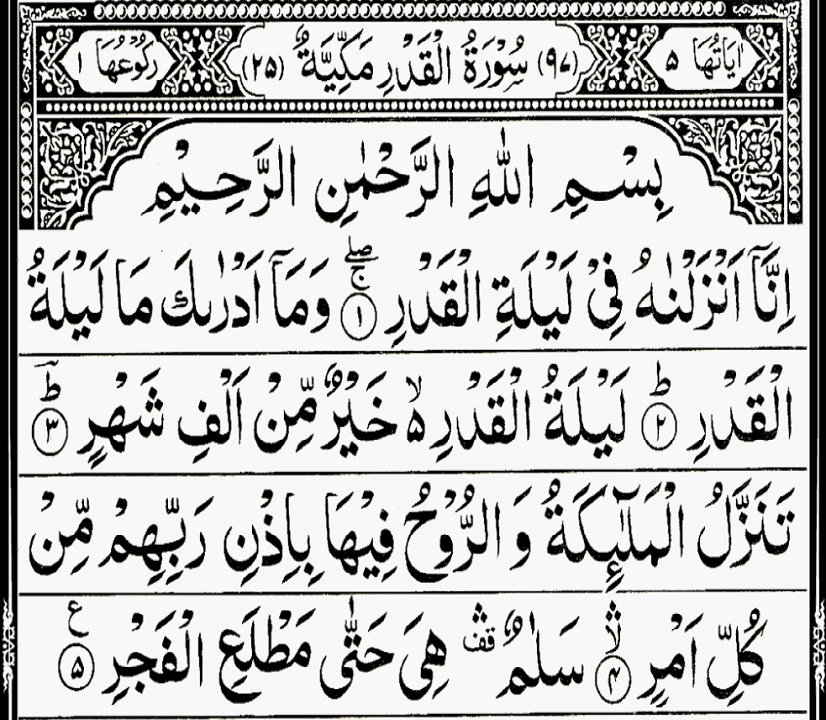 اٰیَاتُهَا ۵ (۹۷) سُوْرَةُ الْقَدْرِ مَكِّيَّةٌ (۲۵) رُكُوْعُهَا ۱
بِسْمِ اللّٰهِ الرَّحْمٰنِ الرَّحِيْمِ
اِنَّاۤ اَنْزَلْنٰهُ فِیْ لَیْلَةِ الْقَدْرِ ۚۖ ۝۱ وَمَاۤ اَدْرٰىكَ مَا لَیْلَةُ
الْقَدْرِ ؕ ۝۲ لَیْلَةُ الْقَدْرِ ۙ۬ خَیْرٌ مِّنْ اَلْفِ شَهْرٍ ؕؔ ۝۳
تَنَزَّلُ الْمَلٰٓىِٕكَةُ وَ الرُّوْحُ فِیْهَا بِاِذْنِ رَبِّهِمْ مِّنْ
كُلِّ اَمْرٍ ۙۛ ۝۴ سَلٰمٌ ۛ۫ قف هِیَ حَتّٰى مَطْلَعِ الْفَجْرِ ۝۵ ع